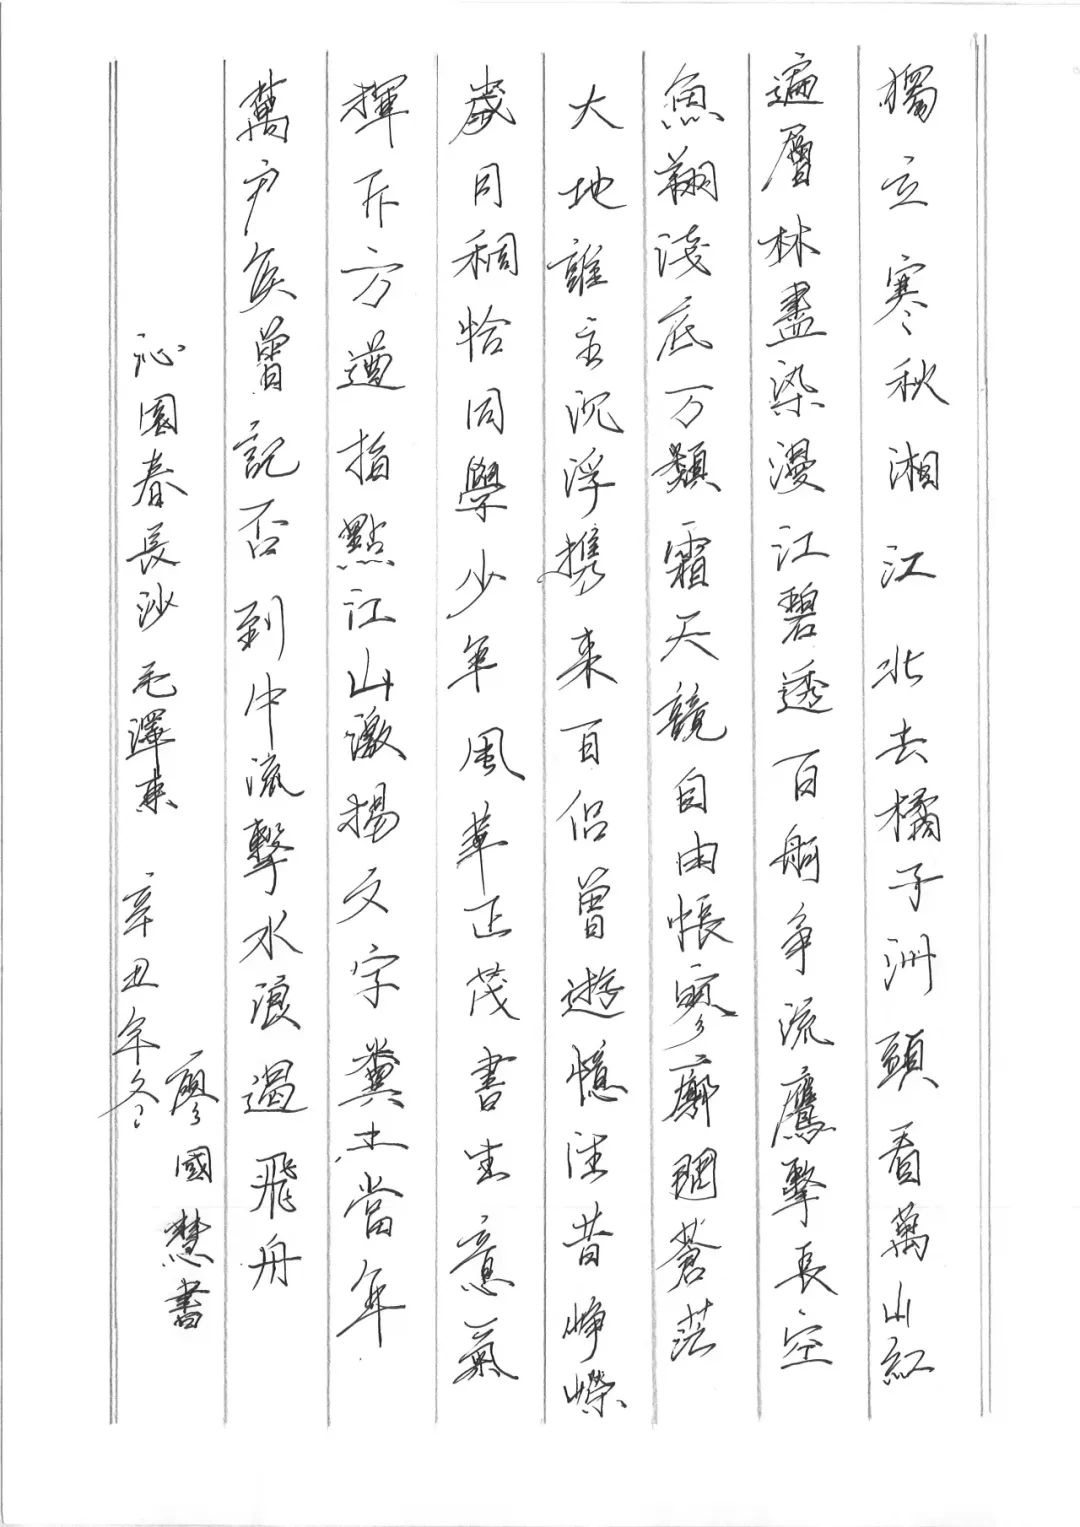 獨立寒秋湘江北去橘子洲頭看萬山紅
遍層林盡染漫江碧透百舸争流鷹擊長空
魚翔淺底万類霜天競自由悵寥廓問蒼茫
大地誰主沉浮携来百侣曾遊憶往昔崢嶸
歲月稠恰同學少年風華正茂書生意氣
揮斥方遒指點江山激揚文字糞土當年
萬户侯曾記否到中流擊水浪遏飛舟
沁園春長沙 毛澤東 辛丑年冬
廖國慧書